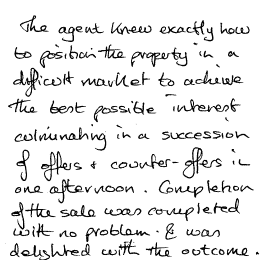 The agent knew exactly how
to position the property in a
difficult market to achieve
the best possible interest
culminating in a succession
of offers + counter-offers in
one afternoon. Completion
of the sale was completed
with no problem. & was
delighted with the outcome.